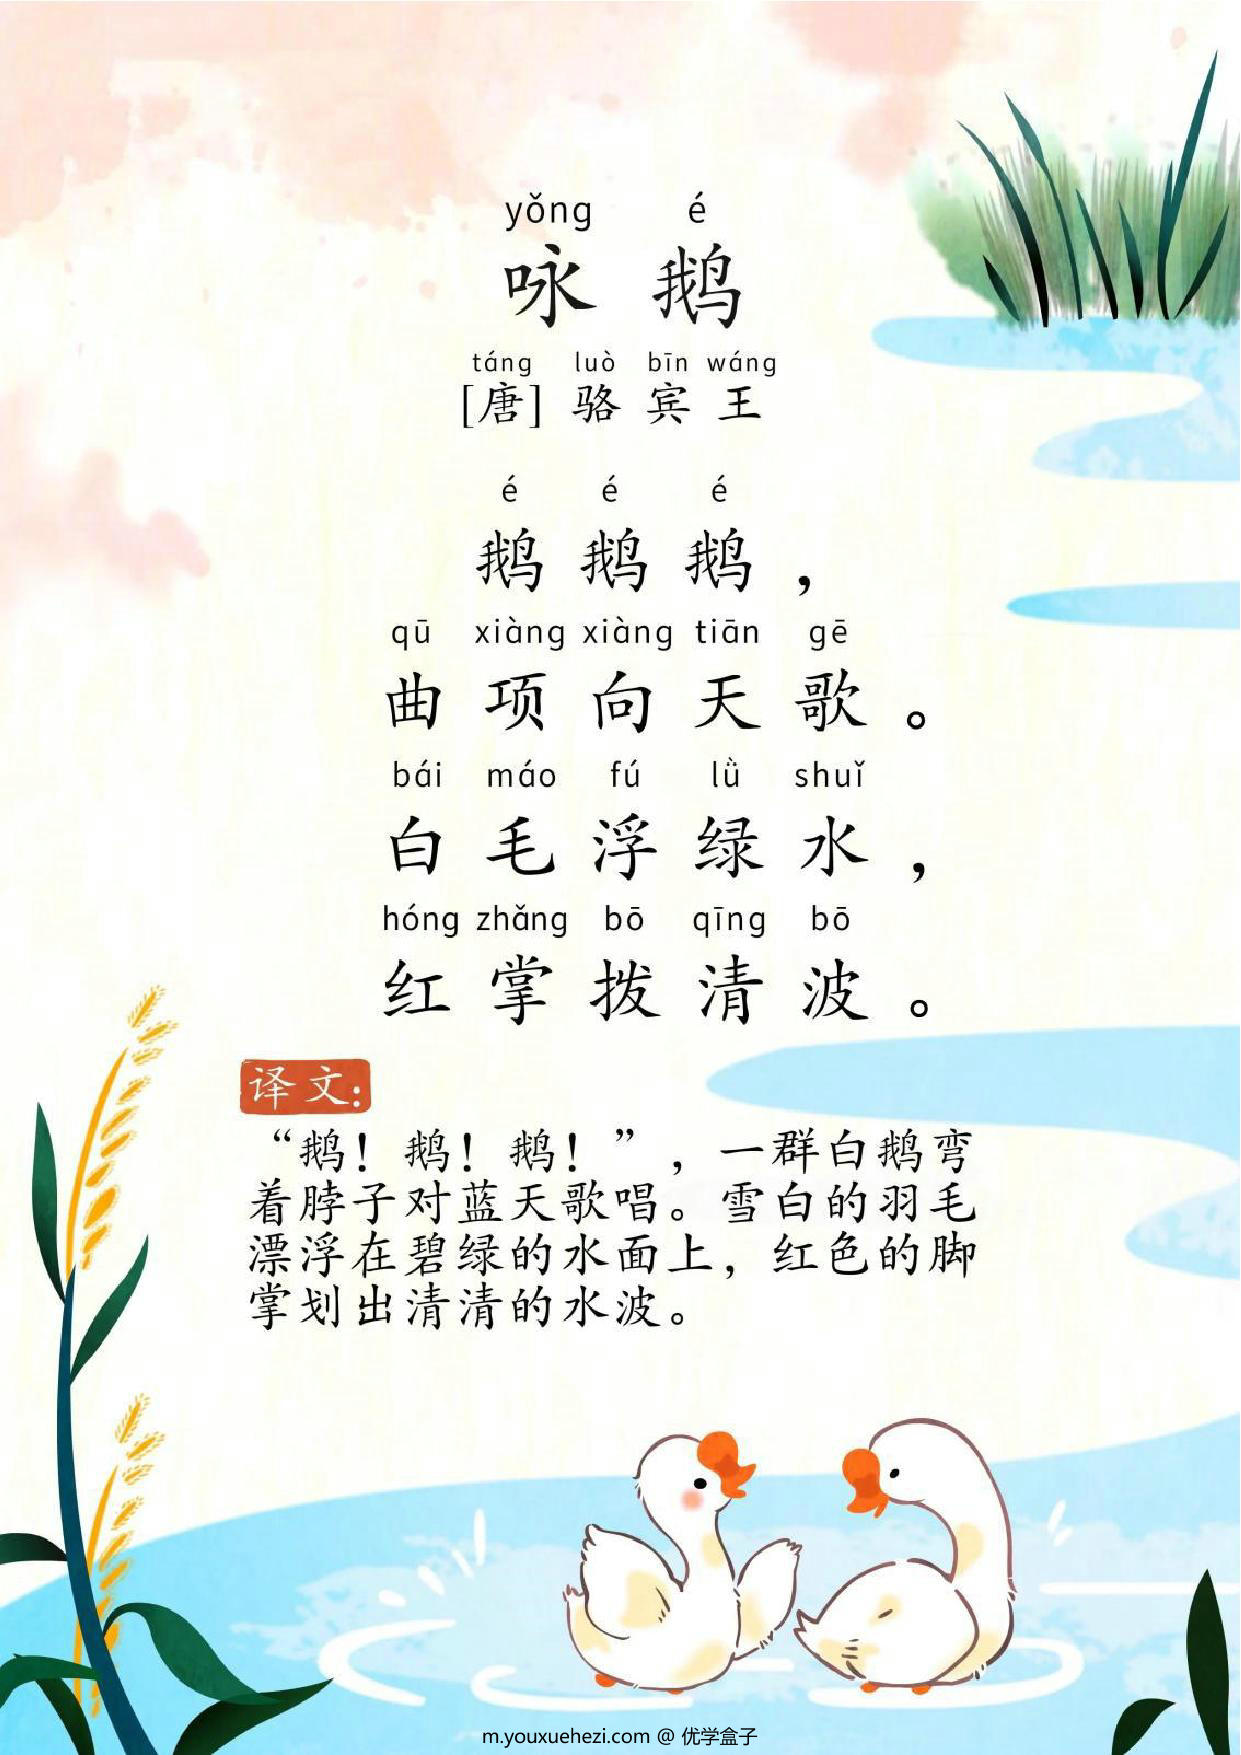 yǒng é
咏 鹅
táng luò bīn wáng
[唐] 骆 宾 王
é é é
鹅 鹅 鹅 ，
qū xiàng xiàng tiān gē
曲 项 向 天 歌 。
bái máo fú lǜ shuǐ
白 毛 浮 绿 水 ，
hóng zhǎng bō qīng bō
红 掌 拨 清 波 。
译文：
“鹅！鹅！鹅！”，一群白鹅弯
着脖子对蓝天歌唱。雪白的羽毛
漂浮在碧绿的水面上，红色的脚
掌划出清清的水波。
m.youxuehezi.com @ 优学盒子